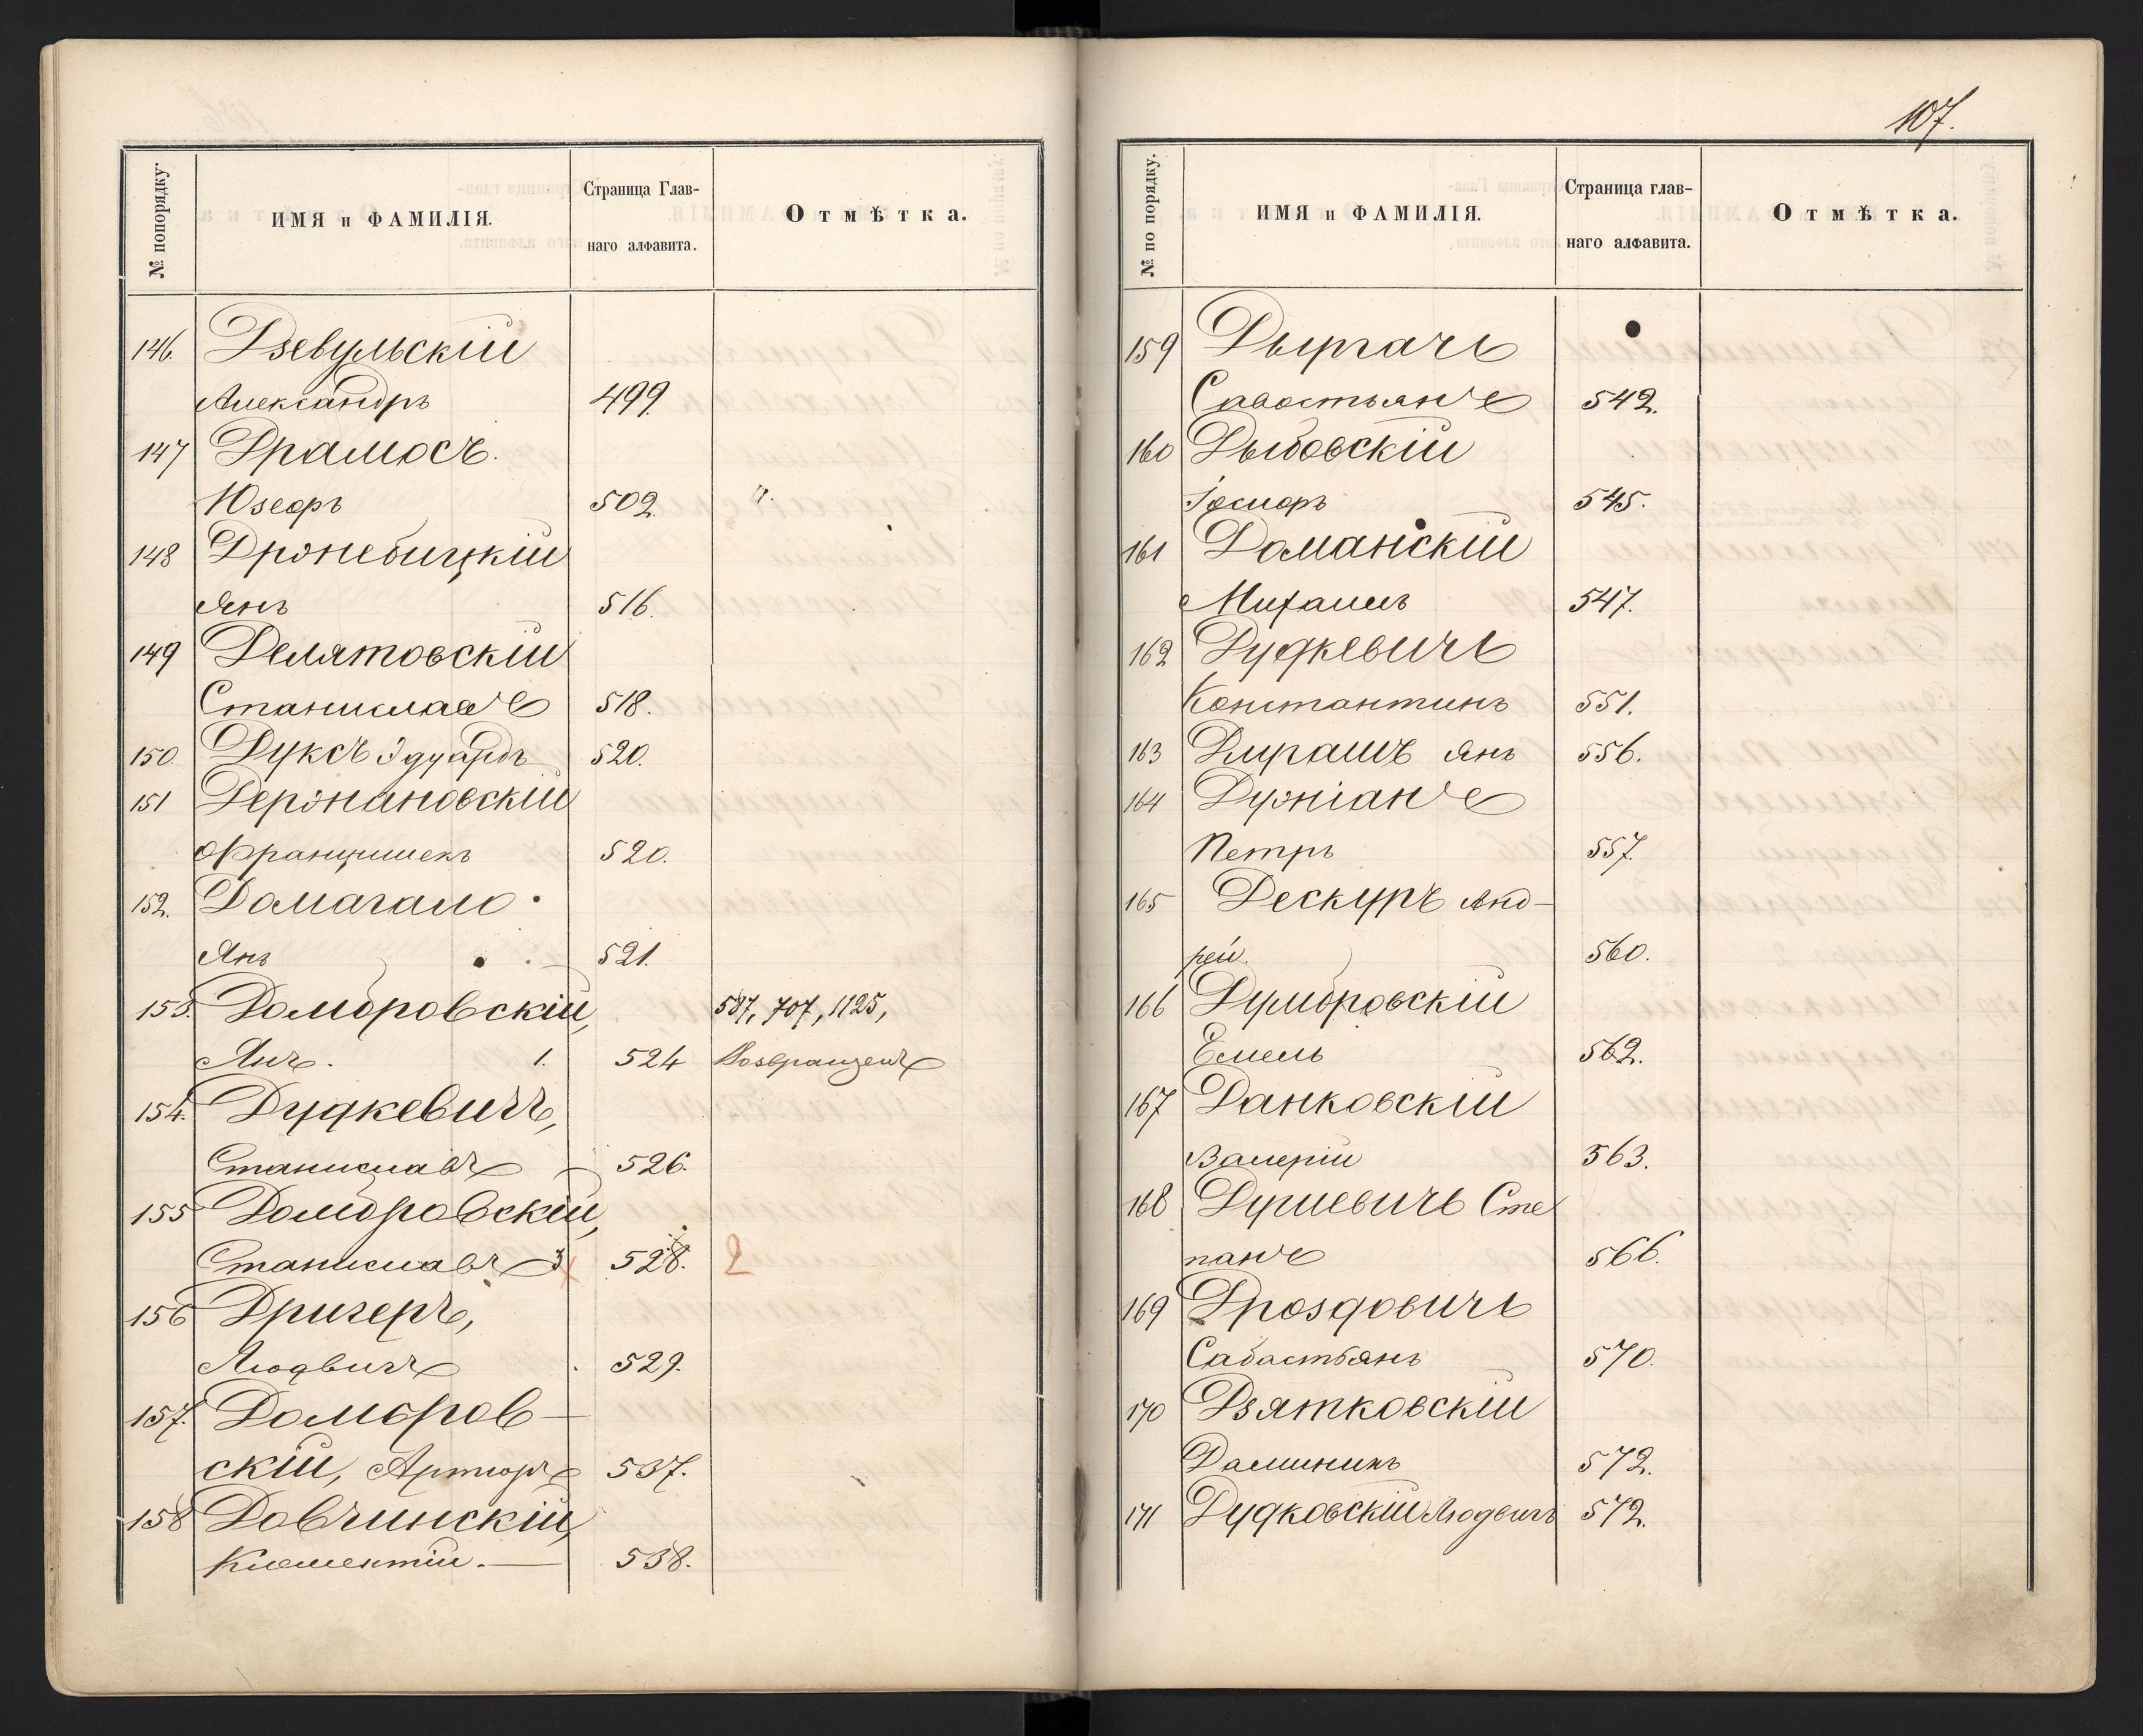 № попорядку.
ИМЯ и ФАМИЛІЯ.
Страница Глав-
наго алфавита.
Отмѣтка.
146. Дзевульскій
Александръ 499.
147 Драмосъ.
Юзефъ 502.
148 Држебицкій
Янъ 516.
149 Делятовскій
Станиславъ 518.
150. Дуксъ Эдуардъ 520.
151 Держановскій
Францишекъ 520.
152. Домагало
Янъ 521.
153. Домбровскій, 587, 707, 1125,
Янъ. 1. 524 Возвращенъ
154. Дудкевичъ,
Станиславъ 526.
155 Домбровскій,
Станиславъ 3 528. 2
156 Дригеръ,
Людвигъ 529.
157. Домбров-
скій, Артюръ 537.
158 Довчинскій,
Климентій. 538.
107.
№ по порядку.
ИМЯ и ФАМИЛІЯ.
Страница глав-
наго алфавита.
Отмѣтка.
159 Дыргачъ
Савостьянъ 542.
160 Дыбовскій
Іосифъ 545.
161 Доманскій
Михаилъ 547.
162 Дудкевичъ
Константинъ 551.
163 Янъ 556.
164
Петръ 557.
165 Дескуръ Анд-
рей. 560.
166 Думбровскій
Емель 562.
167 Данковскій
Валерій 563.
168 Сте
панъ 566.
169 Дроздовичъ
Сабастьянъ 570.
170 Дзятковскій
Доминикъ 572.
171 Дудковскій Людвигъ 572.